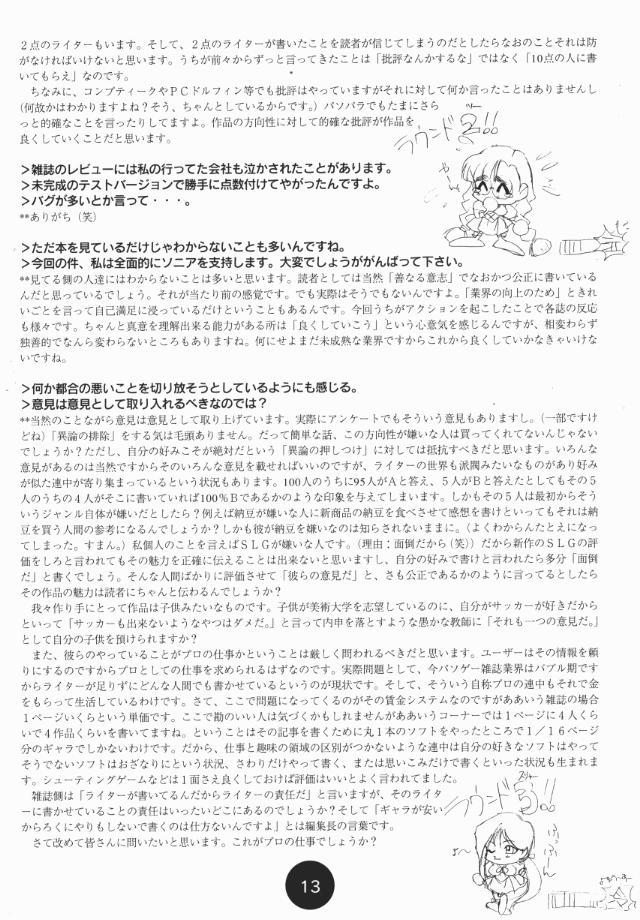 ２点のライターもいます。そして、２点のライターが書いたことを読者が信じてしまうのだとしたらなおのことそれは防
がなければいけないと思います。うちが前々からずっと言ってきたことは「批評なんかするな」ではなく「10点の人に書
いてもらえ」なのです。
ちなみに、コンプティークやＰＣドルフィン等でも批評はやっていますがそれに対して何か言ったことはありませんし
(何故かはわかりますよね？そう、ちゃんとしているからです。) パソパラでもたまにさら
っと的確なことを言ったりしてますよ。作品の方向性に対して的確な批評が作品を
良くしていくことだと思います。
ラウンド2!!
＞雑誌のレビューには私の行ってた会社も泣かされたことがあります。
＞未完成のテストバージョンで勝手に点数付けてやがったんですよ。
＞バグが多いとか言って・・・。
**ありがち（笑）
＞ただ本を見ているだけじゃわからないことも多いんですね。
＞今回の件、私は全面的にソニアを支持します。大変でしょうががんばって下さい。
**見てる側の人達にはわからないことは多いと思います。読者としては当然「善なる意志」でなおかつ公正に書いている
んだと思っているでしょう。それが当たり前の感覚です。でも実際はそうでもないんですよ。「業界の向上のため」ときれ
いごとを言って自己満足に浸っているだけということもあるんです。今回うちがアクションを起こしたことで各誌の反応
も様々です。ちゃんと真意を理解出来る能力がある所は「良くしていこう」という心意気を感じるんですが、相変わらず
独善的でなんら変わらないところもありますね。何にせよまだ未成熟な業界ですからこれから良くしていかなきゃいけな
いですね。
＞何か都合の悪いことを切り放そうとしているようにも感じる。
＞意見は意見として取り入れるべきなのでは？
**当然のことながら意見は意見として取り上げています。実際にアンケートでもそういう意見もありますし。(一部ですけ
どね)「異論の排除」をする気は毛頭ありません。だって簡単な話、この方向性が嫌いな人は買ってくれてないんじゃない
でしょうか？ただし、自分の好みこそが絶対だという「異論の押しつけ」に対しては抵抗すべきだと思います。いろんな
意見があるのは当然ですからそのいろんな意見を載せればいいのですが、ライターの世界も派閥みたいなものがあり好み
が似た連中が寄り集まっているという状況もあります。100人のうちに95人がＡと答え、５人がＢと答えたとしてもその５
人のうちの４人がそこに書いていれば100％Ｂであるかのような印象を与えてしまいます。しかもその５人は最初からそう
いうジャンル自体が嫌いだとしたら？例えば納豆が嫌いな人に新商品の納豆を食べさせて感想を書けといってもそれは納
豆を買う人間の参考になるんでしょうか？しかも彼が納豆を嫌いなのは知らされないままに。（よくわからんたとえになっ
てしまった。すまん。）私個人のことを言えばＳＬＧが嫌いな人です。（理由：面倒だから（笑））だから新作のＳＬＧの評
価をしろと言われてもその魅力を正確に伝えることは出来ないと思いますし、自分の好みで書けと言われたら多分「面倒
だ」と書くでしょう。そんな人間ばかりに評価させて「彼らの意見だ」と、さも公正であるかのように言ってるとしたら
その作品の魅力は読者にちゃんと伝わるんでしょうか？
我々作り手にとって作品は子供みたいなものです。子供が美術大学を志望しているのに、自分がサッカーが好きだから
といって「サッカーも出来ないようなやつはダメだ。」と言って内申を落とすような愚かな教師に「それも一つの意見だ。」
として自分の子供を預けられますか？
また、彼らのやっていることがプロの仕事かということは厳しく問われるべきだと思います。ユーザーはその情報を頼
りにするのですからプロとしての仕事を求められるはずなのです。実際問題として、今パソゲー雑誌業界はバブル期です
からライターが足りずにどんな人間でも書かせているというのが現状です。そして、そういう自称プロの連中もそれで金
をもらって生活しているわけです。さて、ここで問題になってくるのがその賃金システムなのですがああいう雑誌の場合
１ページいくらという単価です。ここで勘のいい人は気づくかもしれませんがああいうコーナーでは１ページに４人くら
いで４作品くらいを書いてますね。ということはその記事を書くために丸１本のソフトをやったところで１／１６ページ
分のギャラでしかないわけです。だから、仕事と趣味の領域の区別がつかないような連中は自分の好きなソフトはやって
そうでないソフトはおざなりにという状況、さわりだけやって書く、または思いこみだけで書くといった状況も生まれま
す。シューティングゲームなどは１面さえ良くしておけば評価はいいとよく言われてました。
雑誌側は「ライターが書いてるんだからライターの責任だ」と言いますが、そのライタ
ーに書かせていることの責任はいったいどこにあるのでしょうか？そして「ギャラが安い
からろくにやりもしないで書くのは仕方ないんですよ」とは編集長の言葉です。
さて改めて皆さんに問いたいと思います。これがプロの仕事でしょうか？
13